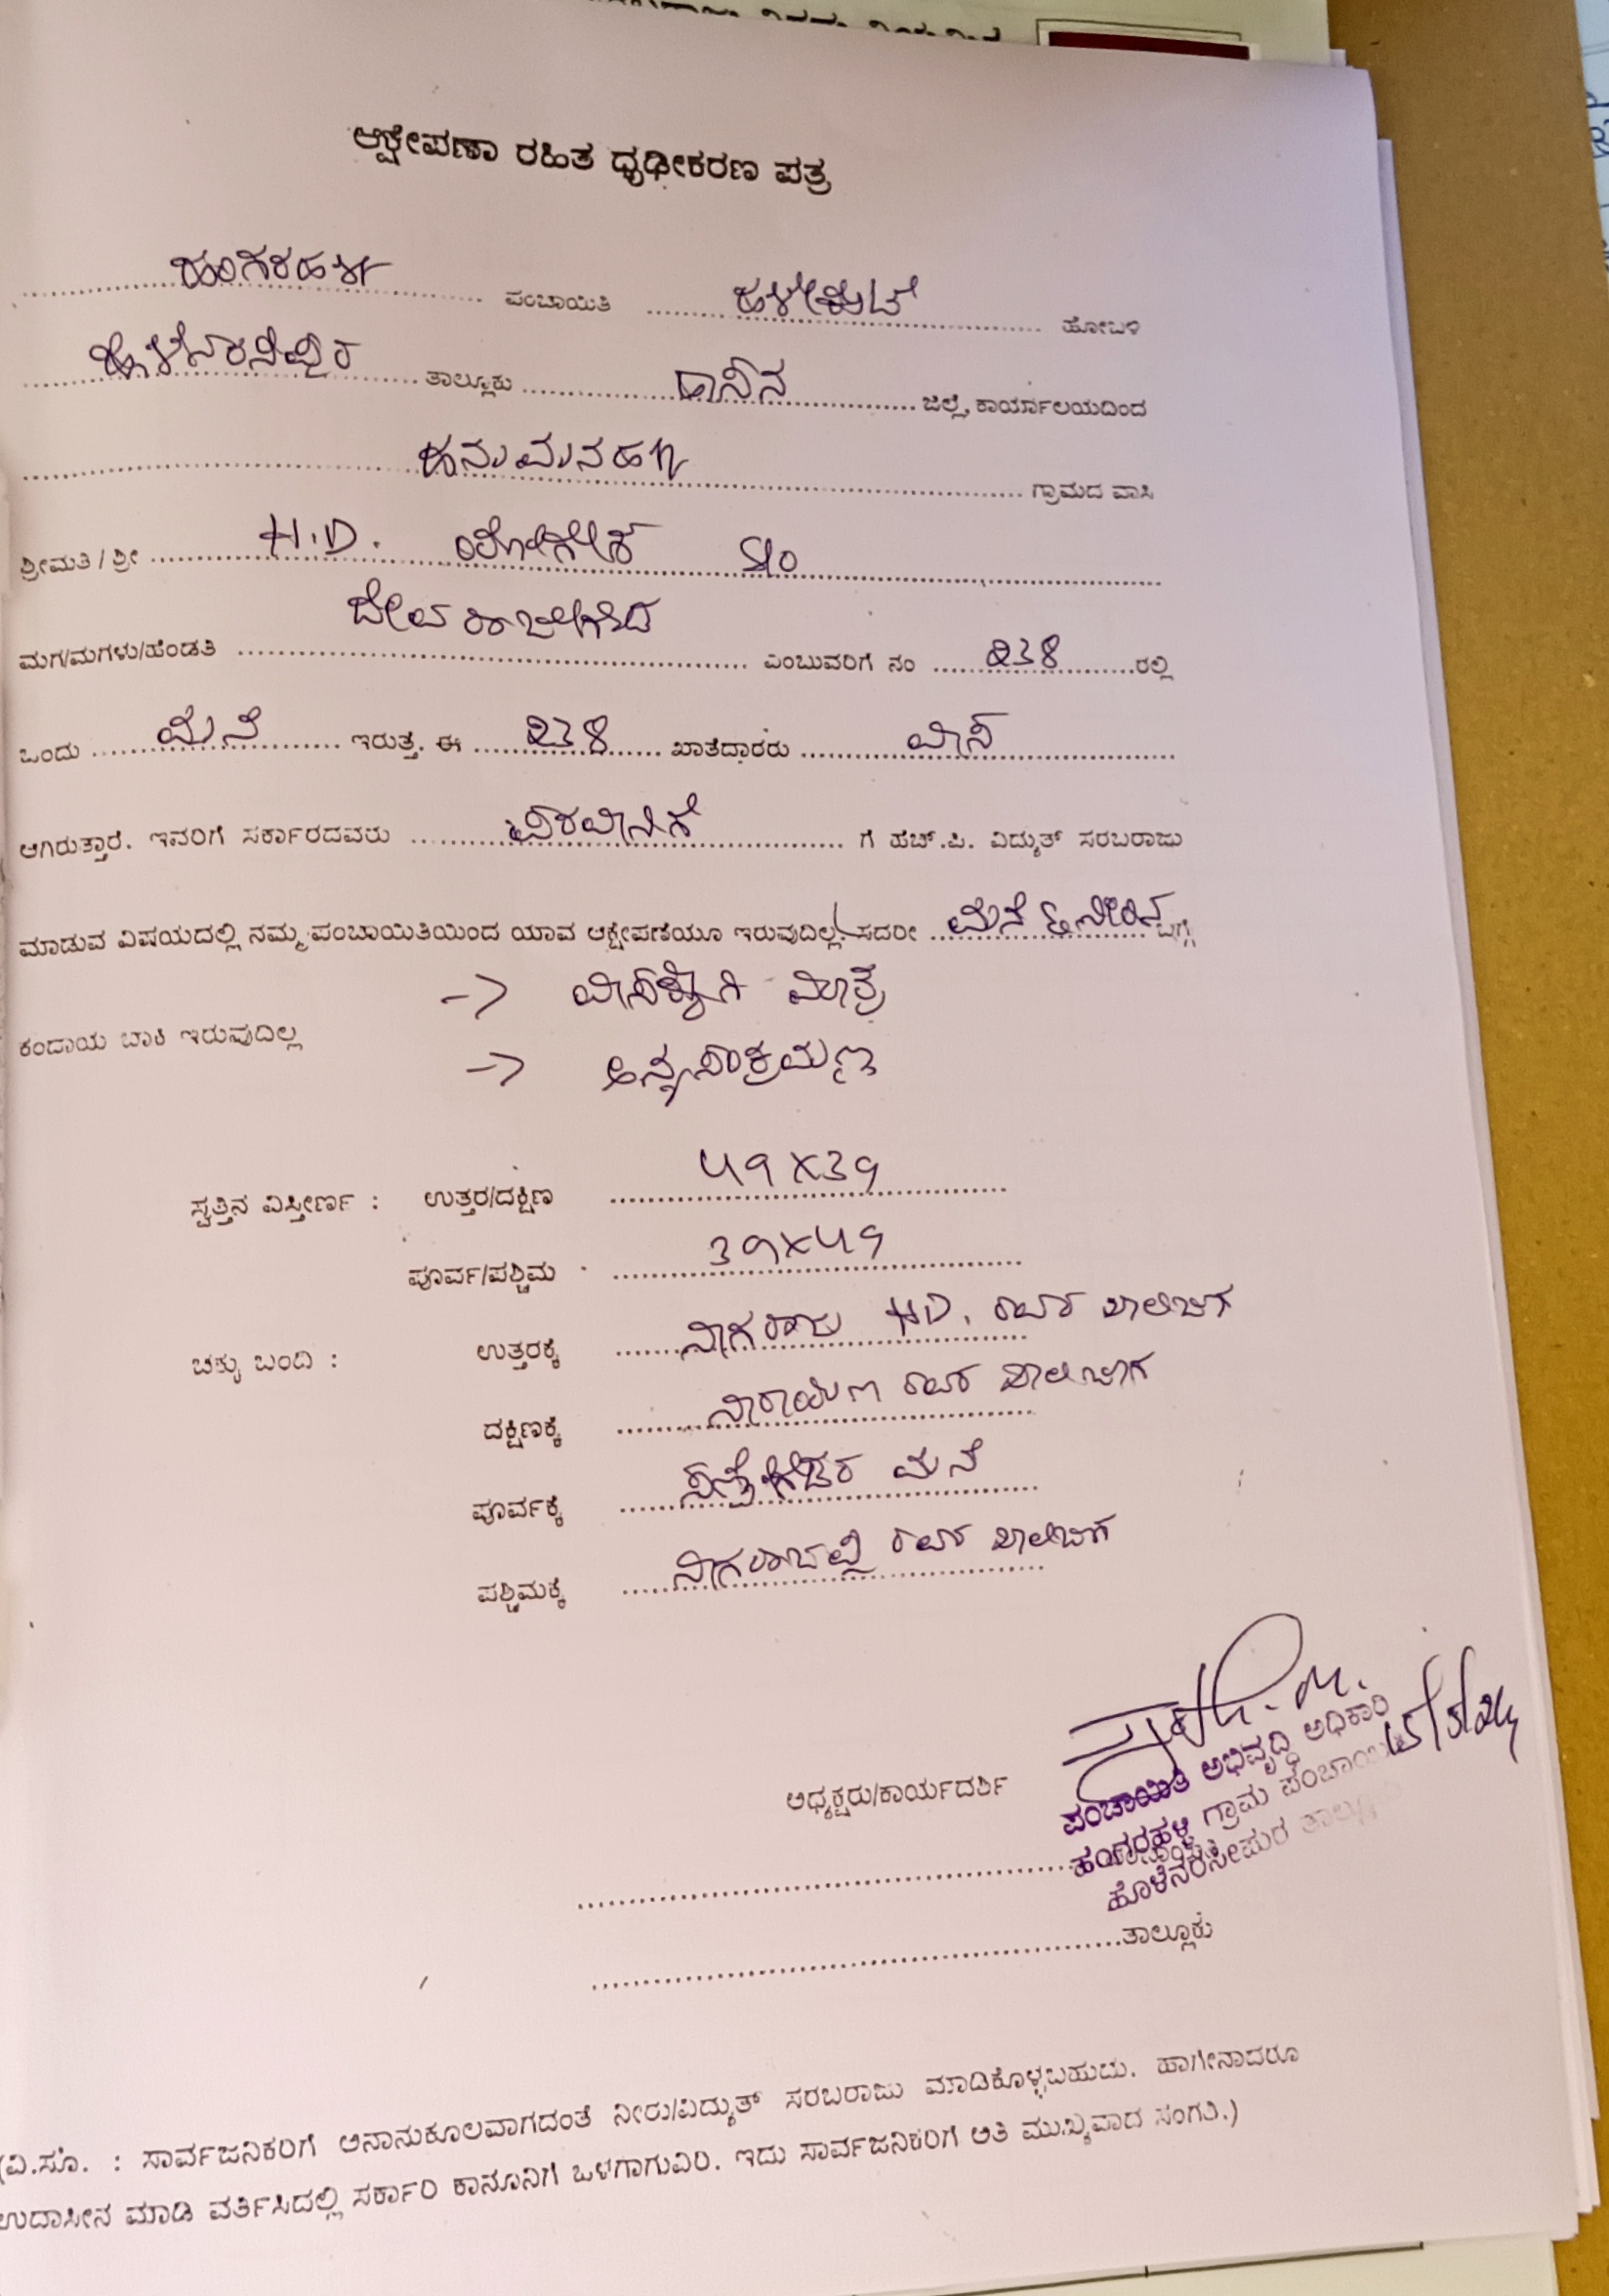 ಆಕ್ಷೇಪಣಾ ರಹಿತ ಧೃಢೀಕರಣ ಪತ್ರ
ಹಂಗರಹಳ್ಳಿ ಪಂಚಾಯಿತಿ ಹಳೇಕೋಟೆ ಹೋಬಳಿ
ಹೊಳೆನರಸೀಪುರ ತಾಲ್ಲೂಕು ಹಾಸನ ಜಿಲ್ಲೆ, ಕಾರ್ಯಾಲಯದಿಂದ
ಹನುಮನಹಳ್ಳಿ ಗ್ರಾಮದ ವಾಸಿ
ಶ್ರೀಮತಿ / ಶ್ರೀ H.D. ಯೋಗೇಶ S/o
ಮಗ/ಮಗಳು/ಹೆಂಡತಿ ದೇವರಾಜೇಗೌಡ ಎಂಬುವರಿಗೆ ನಂ 238 ರಲ್ಲಿ
ಒಂದು ಮನೆ ಇರುತ್ತೆ. ಈ 238 ಖಾತೆದಾರರು ವಾಸ
ಆಗಿರುತ್ತಾರೆ. ಇವರಿಗೆ ಸರ್ಕಾರದವರು ಗೆ ಹೆಚ್.ಪಿ. ವಿದ್ಯುತ್ ಸರಬರಾಜು
ಮಾಡುವ ವಿಷಯದಲ್ಲಿ ನಮ್ಮ ಪಂಚಾಯಿತಿಯಿಂದ ಯಾವ ಆಕ್ಷೇಪಣೆಯೂ ಇರುವುದಿಲ್ಲ. ಸದರೀ ಮನೆ & ನೀರಿನ ಬಗ್ಗೆ
-> ವಾಸಕ್ಕಾಗಿ ಮಾತ್ರ
ಕಂದಾಯ ಬಾಕಿ ಇರುವುದಿಲ್ಲ
->
ಸ್ವತ್ತಿನ ವಿಸ್ತೀರ್ಣ : ಉತ್ತರ/ದಕ್ಷಿಣ 49X39
ಪೂರ್ವ/ಪಶ್ಚಿಮ 39X49
ಚಕ್ಕು ಬಂದಿ : ಉತ್ತರಕ್ಕೆ ನಾಗರಾಜು H.D. ರವರ ಖಾಲಿಜಾಗ
ದಕ್ಷಿಣಕ್ಕೆ ನಾರಾಯಣ ರವರ ಖಾಲಿಜಾಗ
ಪೂರ್ವಕ್ಕೆ ಮನೆ
ಪಶ್ಚಿಮಕ್ಕೆ ರವರ ಖಾಲಿಜಾಗ
ಅಧ್ಯಕ್ಷರು/ಕಾರ್ಯದರ್ಶಿ
ಪಂಚಾಯಿತಿ ಅಭಿವೃದ್ಧಿ ಅಧಿಕಾರಿ
ಹಂಗರಹಳ್ಳಿ ಗ್ರಾಮ ಪಂಚಾಯಿತಿ
ಹೊಳೆನರಸೀಪುರ ತಾಲ್ಲೂಕು
ತಾಲ್ಲೂಕು
(ವಿ.ಸೂ. : ಸಾರ್ವಜನಿಕರಿಗೆ ಅನಾನುಕೂಲವಾಗದಂತೆ ನೀರು/ವಿದ್ಯುತ್ ಸರಬರಾಜು ಮಾಡಿಕೊಳ್ಳಬಹುದು. ಹಾಗೇನಾದರೂ
ಉದಾಸೀನ ಮಾಡಿ ವರ್ತಿಸಿದಲ್ಲಿ ಸರ್ಕಾರಿ ಕಾನೂನಿಗೆ ಒಳಗಾಗುವಿರಿ. ಇದು ಸಾರ್ವಜನಿಕರಿಗೆ ಅತಿ ಮುಖ್ಯವಾದ ಸಂಗತಿ.)